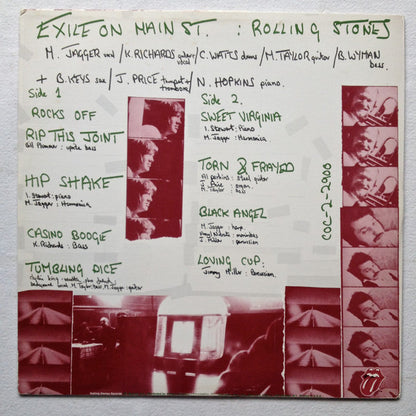 EXILE ON MAIN ST. : ROLLING STONES
M. JAGGER vocal / K. RICHARDS guitar vocal / C. WATTS drums / M. TAYLOR guitar / B. WYMAN bass.
+ B. KEYS sax / J. PRICE trumpet & trombone / N. HOPKINS piano.
Side 1
ROCKS OFF
RIP THIS JOINT
Bill Plummer : upright bass
HIP SHAKE
I. Stewart : piano
M. Jagger : Harmonica
CASINO BOOGIE
K. Richards : Bass
TUMBLING DICE
M. Taylor bass, M. Jagger : guitar
Side 2.
SWEET VIRGINIA
I. Stewart : Piano
M. Jagger : Harmonica
TORN & FRAYED
Al Perkins : steel guitar
J. Price : organ
M. Taylor : bass
BLACK ANGEL
M. Jagger : harp
marimbas
J. Miller : percussion
LOVING CUP :
Jimmy Miller : Percussion.
COC-2-2900
Rolling Stones Records